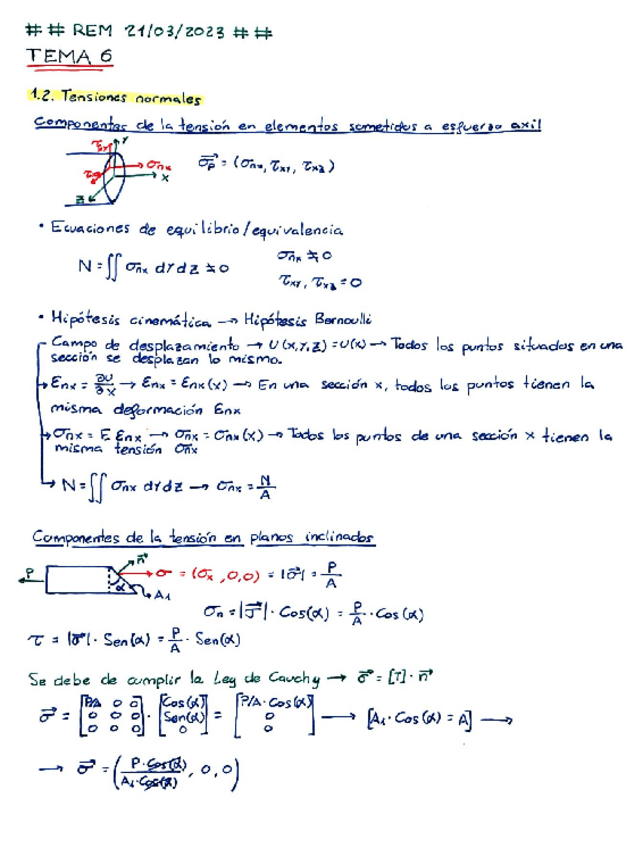 ## REM 21/03/2023 ##
TEMA 6
1.2. Tensiones normales
Componentes de la tensión en elementos sometidos a esfuerzo axil
τxy Y
σnx
X
Z
σp⃗ = (σnx, τxy, τxz)
• Ecuaciones de equilibrio/equivalencia
N = ∬ σnx dYdZ ≠ 0
σnx ≠ 0
τxy, τxz = 0
• Hipótesis cinemática → Hipótesis Bernoulli
Campo de desplazamiento → U(x,y,z) = U(x) → Todos los puntos situados en una
sección se desplazan lo mismo.
Enx = ∂U/∂x → Enx = Enx(x) → En una sección x, todos los puntos tienen la
misma deformación Enx
σnx = E Enx → σnx = σnx(x) → Todos los puntos de una sección x tienen la
misma tensión σnx
N = ∬ σnx dYdZ → σnx = N/A
Componentes de la tensión en planos inclinados
P
n⃗
α
A1
σ = (σx, 0, 0) = |σ⃗| = P/A
σn = |σ⃗| · Cos(α) = P/A · Cos(α)
τ = |σ⃗| · Sen(α) = P/A · Sen(α)
Se debe de cumplir la Ley de Cauchy → σ⃗ = [T] · n⃗
σ⃗ = [P/A 0 0; 0 0 0; 0 0 0] · [Cos(α); Sen(α); 0] = [P/A · Cos(α); 0; 0] → [A1 · Cos(α) = A] →
→ σ⃗ = (P · Cos(α)/A1 · Cos(α), 0, 0)